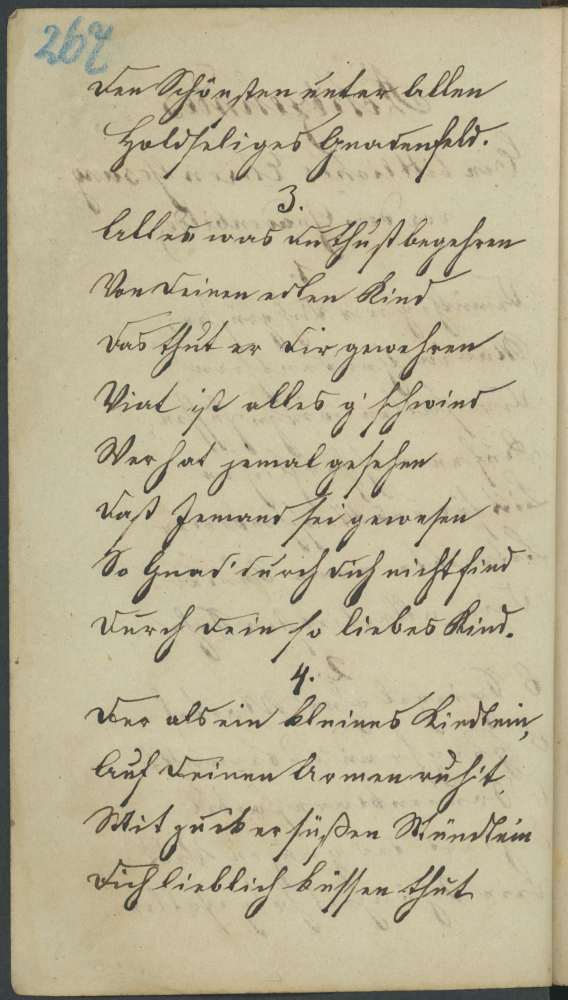 267
Den Schönsten unter Allen
Holdseliges Gnadenfeld.
3.
Alles was du thust begehren
Von Deinen edlen Kind
Das thut er Dir gewehren
Viat ist alles g'schwind
Wer hat jemal gesehen
Daß Jemand sei gewesen
So Gnad' durch dich nicht find
Durch Dein so liebes Kind.
4.
Der als ein kleines Kindlein,
Auf Deinen Armen ruhit,
Mit zuckersüßen Mündlein
Dich lieblich küssen thut